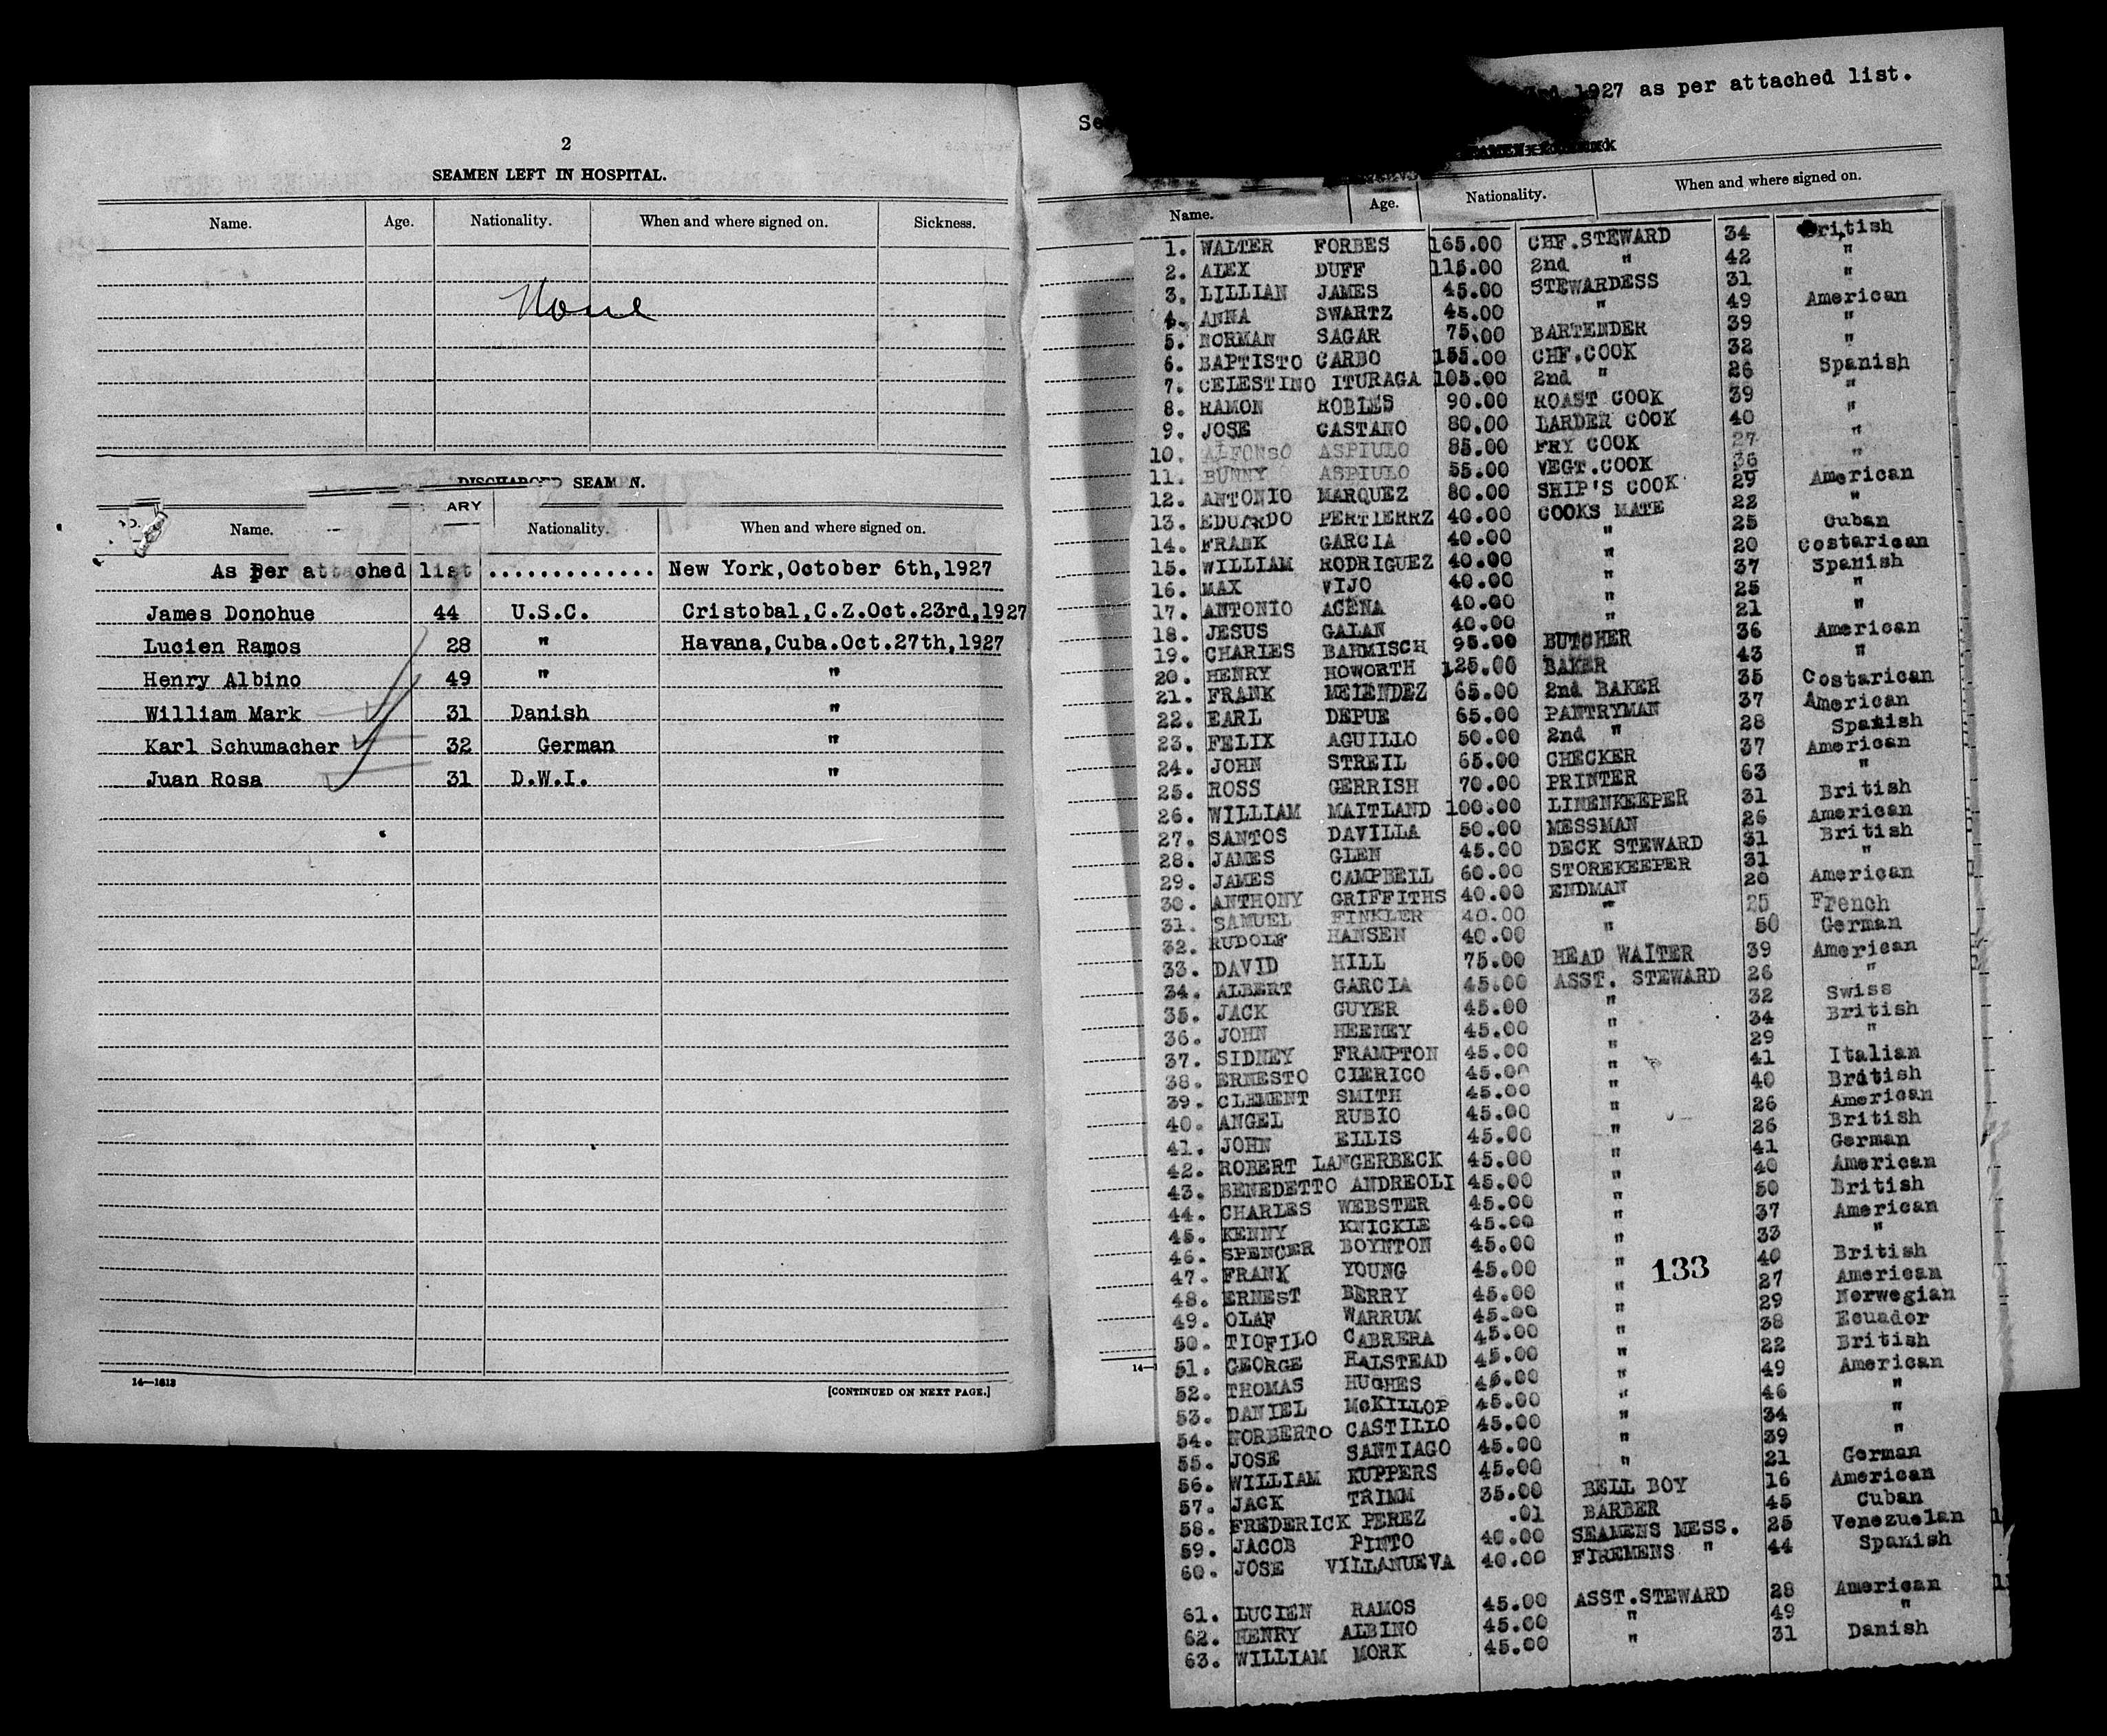 2
SEAMEN LEFT IN HOSPITAL.
Name. Age. Nationality. When and where signed on. Sickness.
None
DISCHARGED SEAMEN.
ARY
Name. Age Nationality. When and where signed on.
As per attached list ............. New York,October 6th,1927
James Donohue 44 U.S.C. Cristobal,C.Z.Oct.23rd,1927
Lucien Ramos 28 " Havana,Cuba.Oct.27th,1927
Henry Albino 49 " "
William Mark 31 Danish "
Karl Schumacher 32 German "
Juan Rosa 31 D.W.I. "
14—1613
[CONTINUED ON NEXT PAGE.]
3rd 1927 as per attached list.
Name. Age. Nationality. When and where signed on.
1. WALTER FORBES 165.00 CHF.STEWARD 34 British
2. ALEX DUFF 115.00 2nd " 42 "
3. LILLIAN JAMES 45.00 STEWARDESS 31 "
4. ANNA SWARTZ 45.00 " 49 American
5. NORMAN SAGAR 75.00 BARTENDER 39 "
6. BAPTISTO CARBO 155.00 CHF.COOK 32 "
7. CELESTINO ITURAGA 105.00 2nd " 26 Spanish
8. RAMON ROBLES 90.00 ROAST COOK 39 "
9. JOSE CASTANO 80.00 LARDER COOK 40 "
10. ALFONSO ASPIULO 85.00 FRY COOK 27 "
11. BUNNY ASPIULO 55.00 VEGT.COOK 36 "
12. ANTONIO MARQUEZ 80.00 SHIP'S COOK 29 American
13. EDUARDO PERTIERRZ 40.00 COOKS MATE 22 "
14. FRANK GARCIA 40.00 " 25 Cuban
15. WILLIAM RODRIGUEZ 40.00 " 20 Costarican
16. MAX VIJO 40.00 " 37 Spanish
17. ANTONIO ACENA 40.00 " 25 "
18. JESUS GALAN 40.00 " 21 "
19. CHARLES BAHMISCH 95.00 BUTCHER 36 American
20. HENRY HOWORTH 125.00 BAKER 43 "
21. FRANK MELENDEZ 65.00 2nd BAKER 35 Costarican
22. EARL DEPUE 65.00 PANTRYMAN 37 American
23. FELIX AGUILLO 50.00 2nd " 28 Spanish
24. JOHN STREIL 65.00 CHECKER 37 American
25. ROSS GERRISH 70.00 PRINTER 63 "
26. WILLIAM MAITLAND 100.00 LINENKEEPER 31 British
27. SANTOS DAVILLA 50.00 MESSMAN 26 American
28. JAMES GLEN 45.00 DECK STEWARD 31 British
29. JAMES CAMPBELL 60.00 STOREKEEPER 31 "
30. ANTHONY GRIFFITHS 40.00 ENDMAN 20 American
31. SAMUEL FINKLER 40.00 " 25 French
32. RUDOLF HANSEN 40.00 " 50 German
33. DAVID HILL 75.00 HEAD WAITER 39 American
34. ALBERT GARCIA 45.00 ASST. STEWARD 26 "
35. JACK GUYER 45.00 " 32 Swiss
36. JOHN HEENEY 45.00 " 34 British
37. SIDNEY FRAMPTON 45.00 " 29 "
38. ERNESTO CLERICO 45.00 " 41 Italian
39. CLEMENT SMITH 45.00 " 40 British
40. ANGEL RUBIO 45.00 " 26 American
41. JOHN ELLIS 45.00 " 26 British
42. ROBERT LANGERBECK 45.00 " 41 German
43. BENEDETTO ANDREOLI 45.00 " 40 American
44. CHARLES WEBSTER 45.00 " 50 British
45. KENNY KNICKLE 45.00 " 37 American
46. SPENCER BOYNTON 45.00 " 33 "
47. FRANK YOUNG 45.00 " 133 40 British
48. ERNEST BERRY 45.00 " 27 American
49. OLAF WARRUM 45.00 " 29 Norwegian
50. TIOFILO CABRERA 45.00 " 38 Ecuador
51. GEORGE HALSTEAD 45.00 " 22 British
52. THOMAS HUGHES 45.00 " 49 American
53. DANIEL McKILLOP 45.00 " 46 "
54. NORBERTO CASTILLO 45.00 " 34 "
55. JOSE SANTIAGO 45.00 " 39 "
56. WILLIAM KUPPERS 45.00 " 21 German
57. JACK TRIMM 35.00 BELL BOY 16 American
58. FREDERICK PEREZ .01 BARBER 45 Cuban
59. JACOB PINTO 40.00 SEAMENS MESS. 25 Venezuelan
60. JOSE VILLANUEVA 40.00 FIREMENS " 44 Spanish
61. LUCIEN RAMOS 45.00 ASST.STEWARD 28 American
62. HENRY ALBINO 45.00 " 49 "
63. WILLIAM MORK 45.00 " 31 Danish